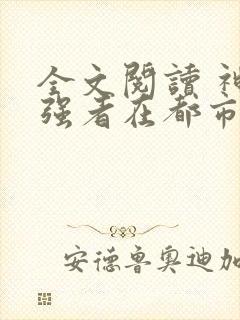 全文閱讀 神
强者在都市
安德鲁奥迪加